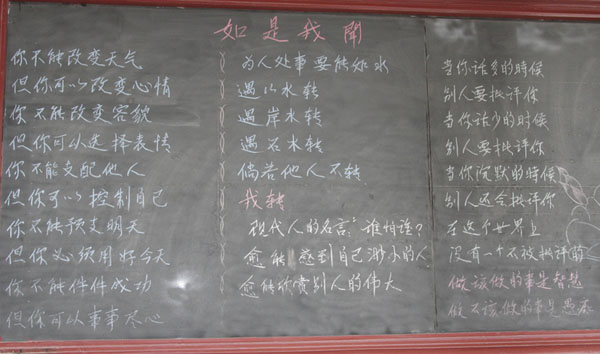 如是我闻
你不能改变天气
但你可以改变心情
你不能改变容貌
但你可以选择表情
你不能支配他人
但你可以控制自己
你不能预支明天
但你必须用好今天
你不能件件成功
但你可以事事尽心
为人处事要能如水
遇山水转
遇岸水转
遇石水转
倘若他人不转
我转
现代人的名言“谁怕谁？
愈能感到自己渺小的人
愈能欣赏别人的伟大
当你话多的時候
别人要批评你
当你话少的时候
别人要批评你
当你沉默的時候
别人还会批评你
在这个世界上
没有一个不被批评的
做该做的事是智慧
做不该做的事是愚